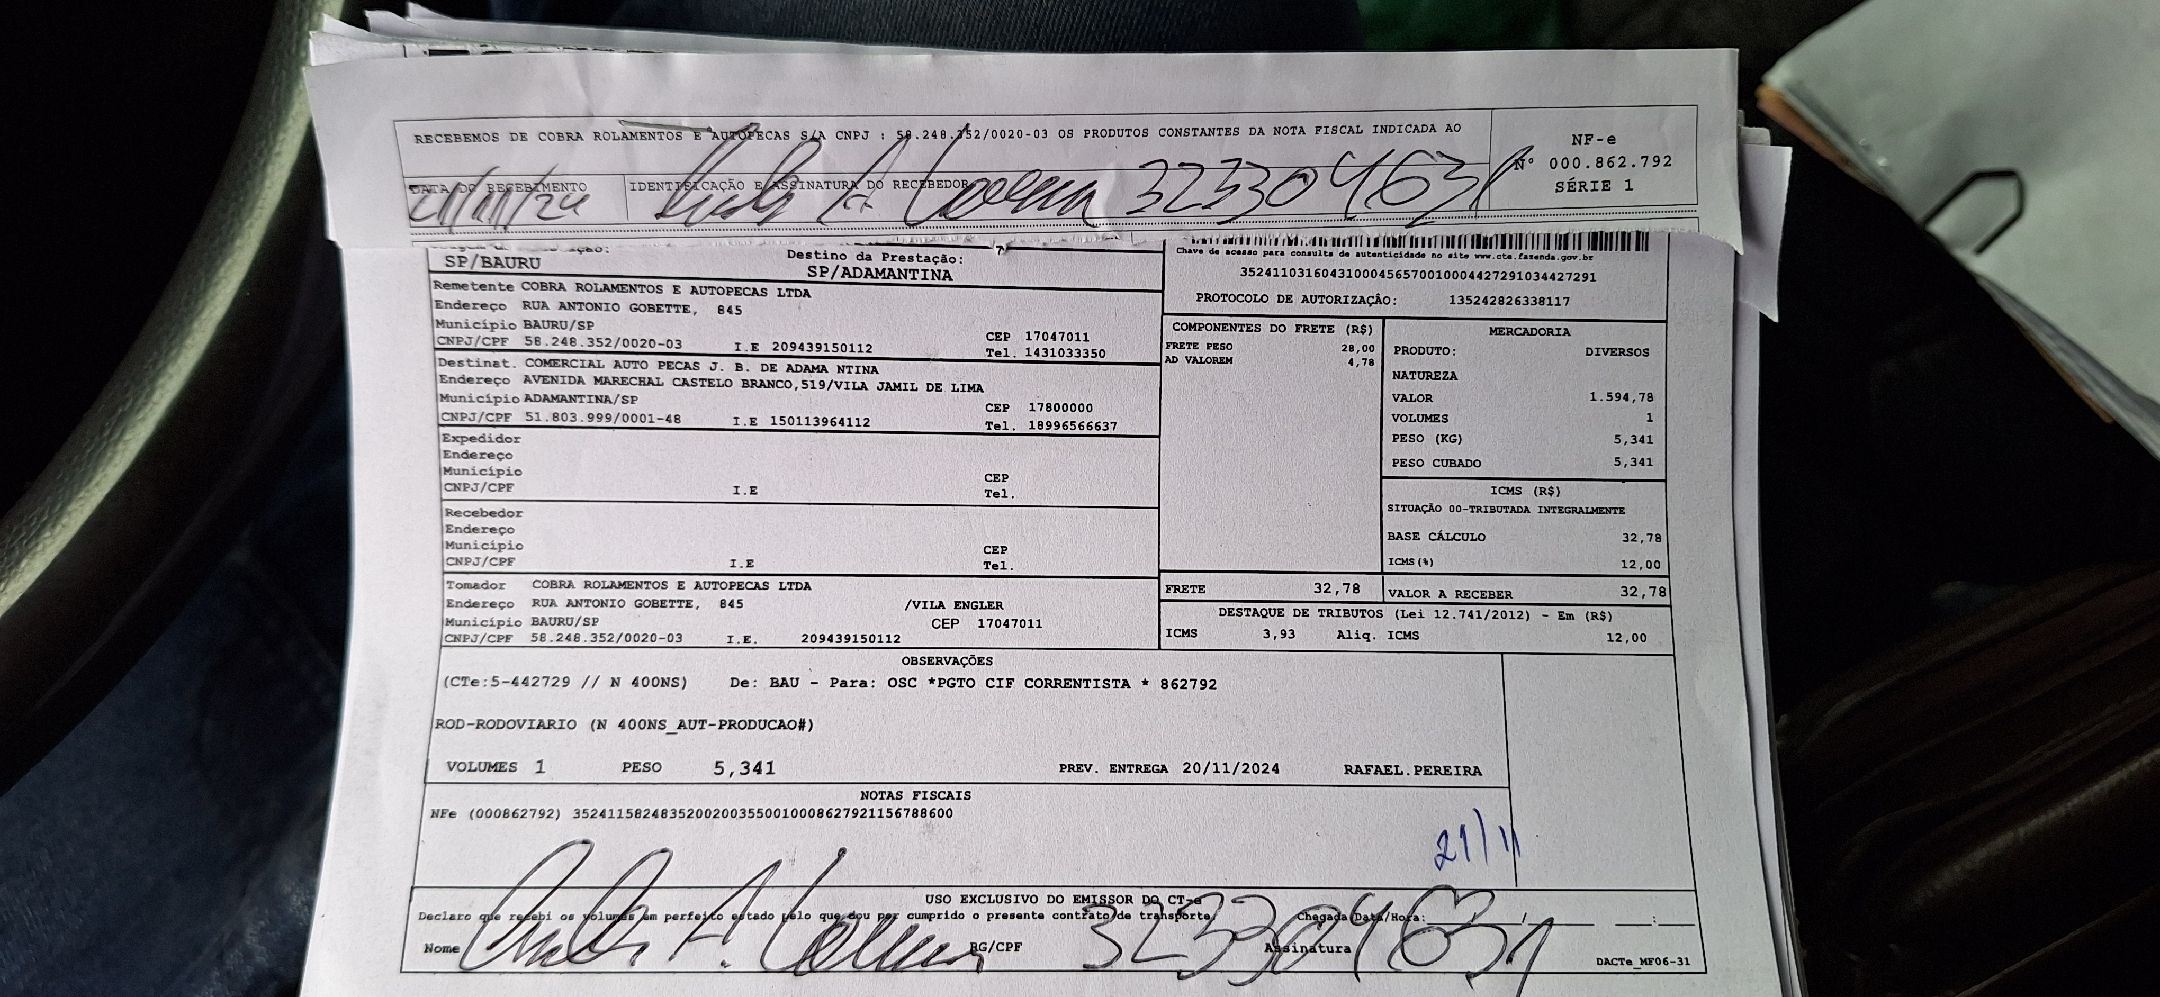 RECEBEMOS DE COBRA ROLAMENTOS E AUTOPECAS S/A CNPJ : 58.248.352/0020-03 OS PRODUTOS CONSTANTES DA NOTA FISCAL INDICADA AO
NF-e
Nº 000.862.792
SÉRIE 1
DATA DO RECEBIMENTO
IDENTIFICAÇÃO E ASSINATURA DO RECEBEDOR
21/11/24
SP/BAURU
Destino da Prestação:
SP/ADAMANTINA
Chave de acesso para consulta de autenticidade no site www.cte.fazenda.gov.br
35241103160431000456570010004427291034427291
PROTOCOLO DE AUTORIZAÇÂO: 135242826338117
Remetente COBRA ROLAMENTOS E AUTOPECAS LTDA
Endereço RUA ANTONIO GOBETTE, 845
Município BAURU/SP
CEP 17047011
CNPJ/CPF 58.248.352/0020-03 I.E 209439150112 Tel. 1431033350
Destinat. COMERCIAL AUTO PECAS J. B. DE ADAMA NTINA
Endereço AVENIDA MARECHAL CASTELO BRANCO,519/VILA JAMIL DE LIMA
Município ADAMANTINA/SP
CEP 17800000
CNPJ/CPF 51.803.999/0001-48 I.E 150113964112 Tel. 18996566637
Expedidor
Endereço
Município
CEP
CNPJ/CPF I.E Tel.
Recebedor
Endereço
Município
CEP
CNPJ/CPF I.E Tel.
Tomador COBRA ROLAMENTOS E AUTOPECAS LTDA
Endereço RUA ANTONIO GOBETTE, 845 /VILA ENGLER
Município BAURU/SP CEP 17047011
CNPJ/CPF 58.248.352/0020-03 I.E. 209439150112
COMPONENTES DO FRETE (R$)
FRETE PESO 28,00
AD VALOREM 4,78
MERCADORIA
PRODUTO: DIVERSOS
NATUREZA
VALOR 1.594,78
VOLUMES 1
PESO (KG) 5,341
PESO CUBADO 5,341
ICMS (R$)
SITUAÇÃO 00-TRIBUTADA INTEGRALMENTE
BASE CÁLCULO 32,78
ICMS(%) 12,00
FRETE 32,78
VALOR A RECEBER 32,78
DESTAQUE DE TRIBUTOS (Lei 12.741/2012) - Em (R$)
ICMS 3,93 Aliq. ICMS 12,00
OBSERVAÇÕES
(CTe:5-442729 // N 400NS) De: BAU - Para: OSC *PGTO CIF CORRENTISTA * 862792
ROD-RODOVIARIO (N 400NS_AUT-PRODUCAO#)
VOLUMES 1 PESO 5,341 PREV. ENTREGA 20/11/2024 RAFAEL.PEREIRA
NOTAS FISCAIS
NFe (000862792) 35241158248352002003550010008627921156788600
21/11
USO EXCLUSIVO DO EMISSOR DO CT-e
Declaro que recebi os volumes em perfeito estado pelo que dou por cumprido o presente contrato de transporte
Chegada Data/Hora: / :
Nome RG/CPF Assinatura
DACTe_MF06-31